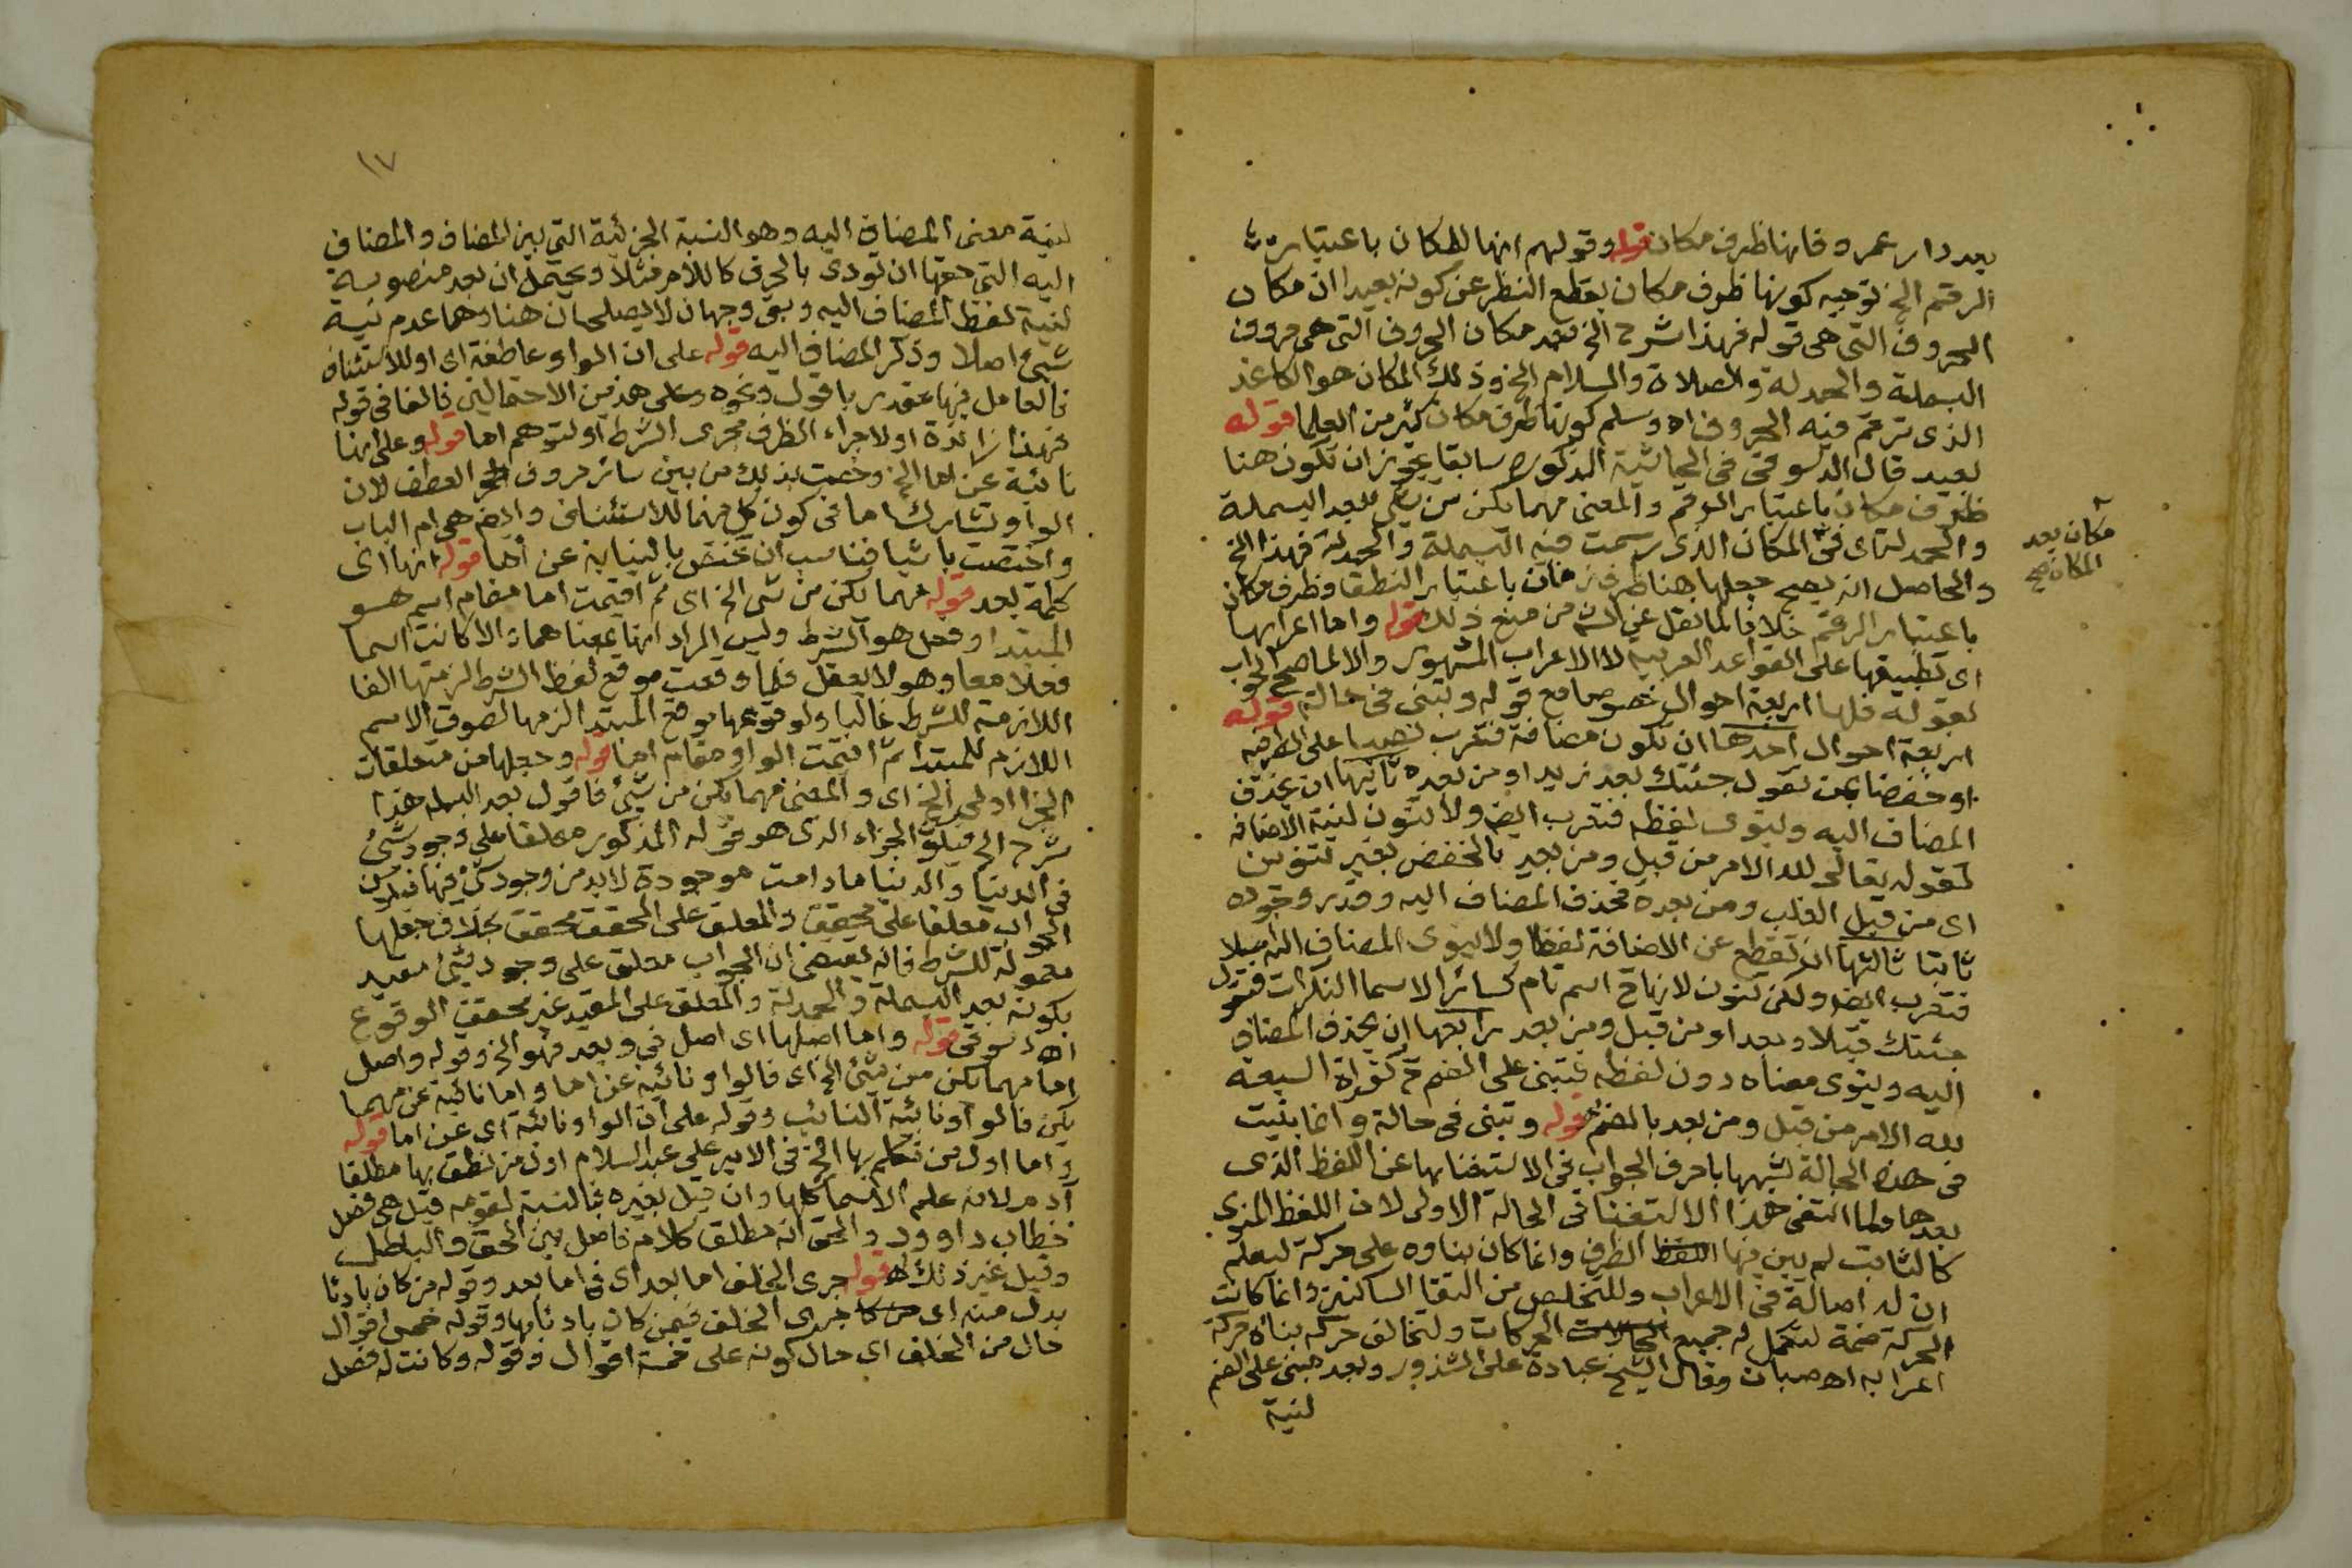 بعد دار عمرو فانها ظرف مكان قوله وقولهم انها للمكان باعتبار
الرقم الخ توجيه كونها ظرف مكان بقطع النظر عن كونه بعيدا ان مكان
الحروف التي هي قوله فهذا شرح الخ بعد مكان الحروف التي هي حروف
البسملة والحمدلة والصلاة والسلام الخ وذلك المكان هو الكاغد
الذى ترقم فيه الحروف اه وسلم كونها ظرف مكان كثير من العلما قوله
بعيد قال الدسوقى فى الحاشية المذكورة سابقا يجوز ان تكون هنا
ظرف مكان باعتبار الرقم والمعنى مهما يكن من شى بعد البسملة
والحمدلة اى فى المكان الذى رسمت فيه البسملة والحمدلة فهذا الخ
مكان بعد
المكان صح
والحاصل انه يصح جعلها هنا ظرف زمان باعتبار النطق وظرف مكان
باعتبار الرقم خلافا لما نقل عن من منع ذلك قوله واما اعرابها
اى تطبيقها على القواعد العربية لا الاعراب المشهور والا لما صح الجواب
بقوله فلها اربعة احوال خصوصا مع قوله وتبنى فى حالة قوله
اربعة احوال احدها ان تكون مضافة فتعرب نصبا على الظرفيه
او خفضا بمن تقول جئتك بعد زيد او من بعده ثانيها ان يحذف
المضاف اليه وينوى لفظه فتعرب ايضا ولا تنون لنية الاضافه
كقوله تعالى لله الامر من قبل ومن بعد بالخفض بغير تنوين
اى من قبل الغلب ومن بعده فحذف المضاف اليه وقدر وجوده
ثابتا ثالثها ان تقطع عن الاضافة لفظا ولا ينوى المضاف اليه
فتعرب ايضا ولكن تنون لانها ح اسم تام كسائر الاسما النكرات فتقول
جئتك قبلا وبعدا ومن قبل ومن بعد رابعها ان يحذف المضاف
اليه وينوى معناه دون لفظه فتبنى على الضم ح كقراة السبعه
لله الامر من قبل ومن بعد بالضم قوله وتبنى فى حالة وانما بنيت
فى هذه الحالة لشبهها باحرف الجواب فى الاستغنا بها عن اللفظ الذى
بعدها ولما انتفى هذا الاستغنا فى الحالة الاولى لان اللفظ المنوى
كالثابت لم يبن فيها اللفظ الظرف وانما كان بناوه على حركة ليعلم
ان له اصالة فى الاعراب وللتخلص من التقا الساكنين وانما كانت
الحركة ضمة لتكمل له جميع الحالات الحركات ولتخالف حركه بناه حركة
اعرابه اه صبان وقال الشيخ عبادة على الشذور وبعد مبنى على الضم
لنية
١٧
لنية معنى المضاف اليه وهو النسبة الجزئية التى بين المضاف والمضاف
اليه التى حقها ان تؤدى بالحرف كاللام مثلا ويحتمل ان بعد منصوبة
لنية لفظ المضاف اليه وبقى وجهان لا يصلحان هنا وهما عدم نية
شئ اصلا وذكر المضاف اليه قوله على ان الواو عاطفة اى او للاستئناف
فالعامل فيها مقدر باقول ونحوه وعلى هذين الاحتمالين فالفا فى قوله
فهذا زائدة او لاجراء الظرف مجرى الشرط او لتوهم اما قوله وعلى انها
نائبة عن اما الخ وخصت بذلك من بين سائر حروف العطف لان
الواو تشارك اما فى كون كل منهما للاستئناف وايضا هى ام الباب
واختصت باشيا فناسب ان تختص بالنيابة عن اما قوله انها اى
كلمة بعد قوله مهما يكن من شى الخ اى ثم اقيمت اما مقام اسم هو
المبتدا وفعل هو الشرط وليس المراد انها بمعناهما والا كانت اسما
وفعلا معا وهو لا يعقل فلما وقعت موقع لفظ الشرط لزمتها الفا
اللازمة للشرط غالبا ولوقوعها موقع المبتدا لزمها لصوق الاسم
اللازم للمبتدا ثم اقيمت الواو مقام اما قوله وجعلها من متعلقات
الجزا اولى الخ اى والمعنى مهما يكن من شئ فاقول بعد البسمله هذا
شرح الخ فيكون الجزاء الذى هو قوله المذكور معلقا على وجود شئ
فى الدنيا والدنيا ما دامت موجودة لابد من وجود شئ فيها فيكون
الجواب معلقا على محقق والمعلق على المحقق محقق بخلاف جعلها
معمولة للشرط فانه يقتضى ان الجواب معلق على وجود شئ مقيد
بكونه بعد البسملة والحمدلة والمعلق على المقيد غير محقق الوقوع
اه دسوقى قوله واما اصلها اى اصل فى وبعد فهو الخ وقوله واصل
اما مهما يكن من شئ الخ اى فالواو نائبة عن اما واما نائبة عن مهما
يكن فالواو نائبة النائب وقوله على ان الواو نائبة اى عن اما قوله
واما اول من تكلم بها الخ فى الامير على عبد السلام اول من نطق بها مطلقا
آدم لانه علم الاسما كلها وان قيل بغيره فبالنسبة لقومه قيل هى فصل
خطاب داوود والحق انه مطلق كلام فاصل بين الحق والباطل
وقيل غير ذلك اه قوله جرى الخلف اما بعد اى فى اما بعد وقوله من كان بادئا
بدل منه اى من كا جرى الخلف فيمن كان بادئا بها وقوله خمس اقوال
حال من الخلف اى حال كونه على خمسة اقوال وقوله وكانت له فصل